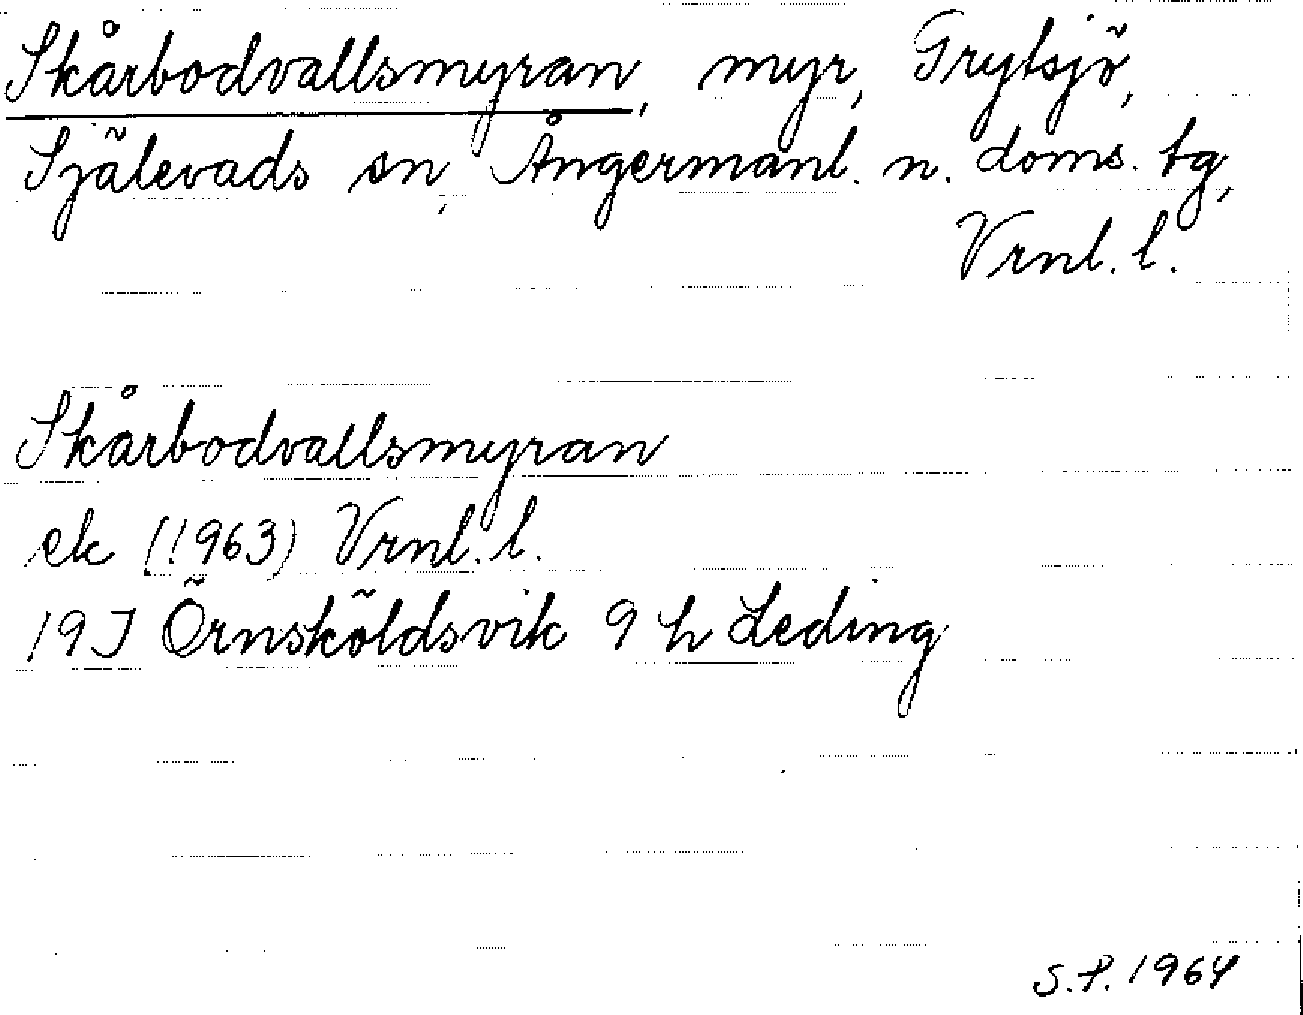 Skårbodvallsmyran, myr, Grytsjö,
Själevads sn, Ångermanl. n. doms. tg,
Vrnl. l.
Skårbodvallsmyran
ek (1963) Vrnl. l.
19J Örnsköldsvik 9 h Leding
S.P. 1964